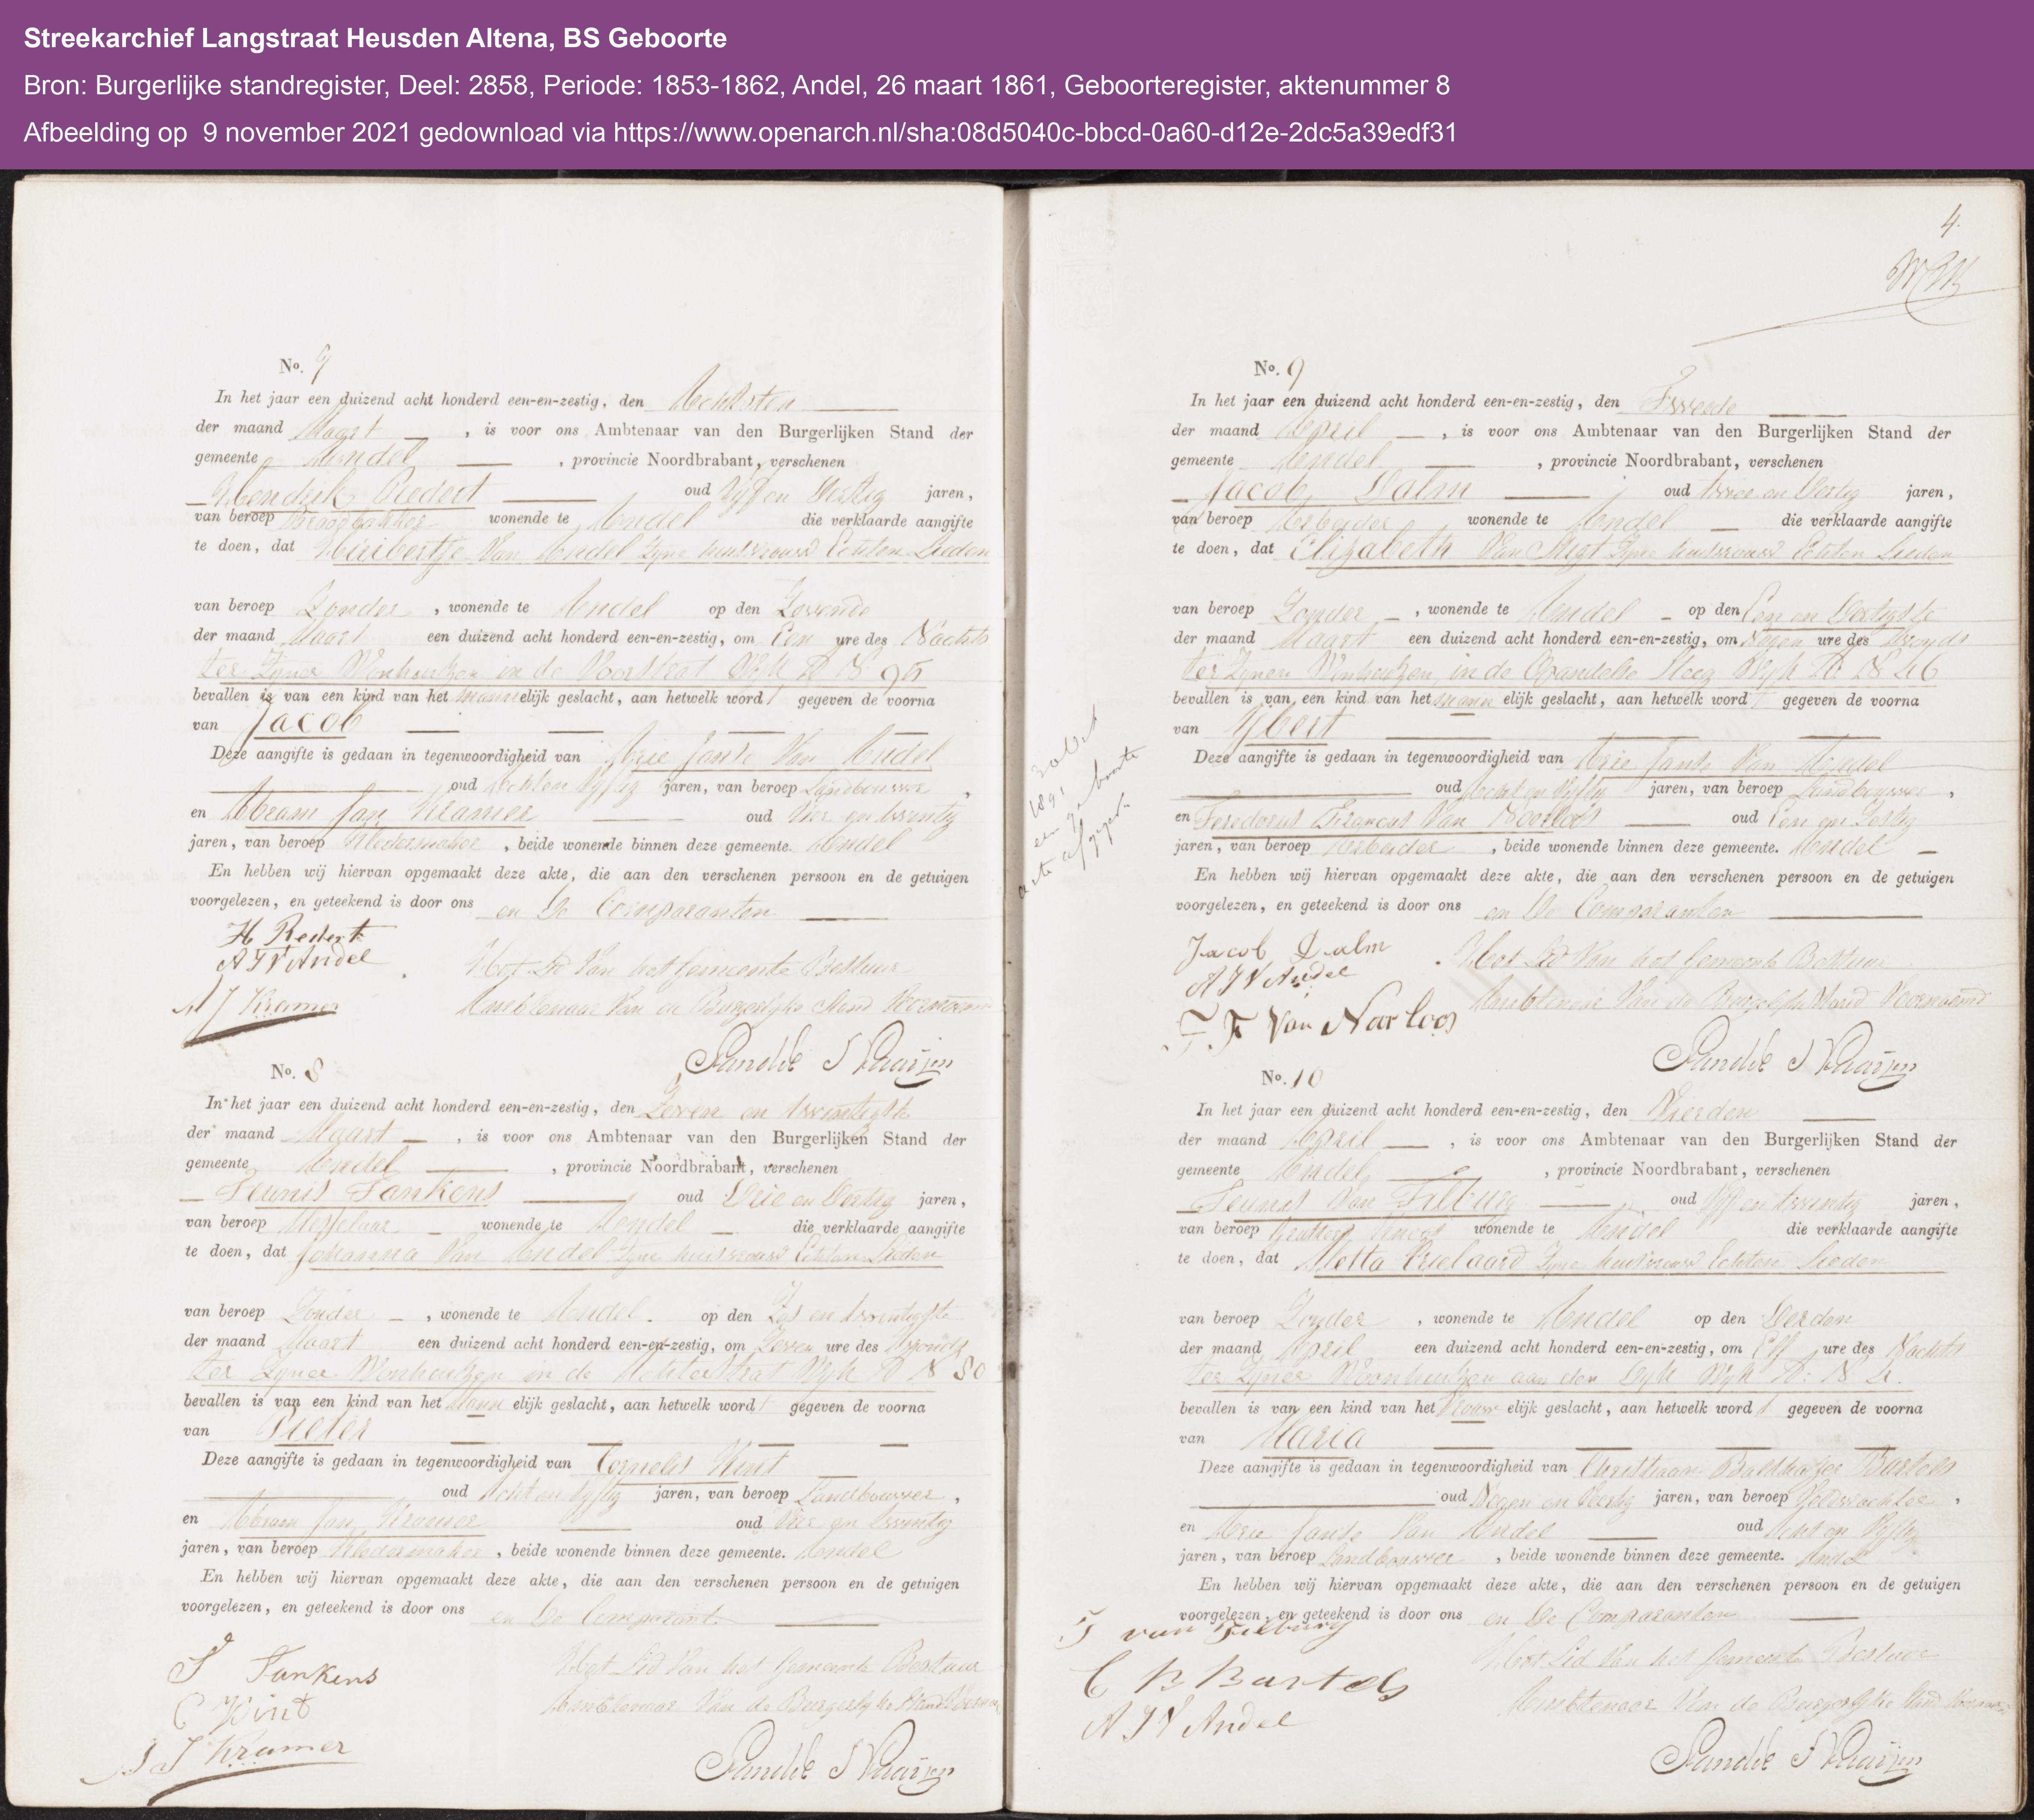 Streekarchief Langstraat Heusden Altena, BS Geboorte
Bron: Burgerlijke standregister, Deel: 2858, Periode: 1853-1862, Andel, 26 maart 1861, Geboorteregister, aktenummer 8
Afbeelding op 9 november 2021 gedownload via https://www.openarch.nl/sha:08d5040c-bbcd-0a60-d12e-2dc5a39edf31
No. 7
In het jaar een duizend acht honderd een-en-zestig, den Achtsten
der maand Maart, is voor ons Ambtenaar van den Burgerlijken Stand der
gemeente Andel, provincie Noordbrabant, verschenen
Hendrik Redert oud Vyf en Dertig jaren,
van beroep Broodbakker wonende te Andel die verklaarde aangifte
te doen, dat Huibertje Van Andel Zyne huisvrouw Echten Lieden
van beroep Zonder, wonende te Andel op den Zevende
der maand Maart een duizend acht honderd een-en-zestig, om Een ure des Nachts
ter Zyner Woonhuizen in de Voorstrat Wyk N 95
bevallen is van een kind van het mannelijk geslacht, aan hetwelk wordt gegeven de voorna
van Jacob
Deze aangifte is gedaan in tegenwoordigheid van Arie Janse Van Andel
oud Achten Vyftig jaren, van beroep Landbouwer,
en Abram Jan Kramer oud Vier en twintig
jaren, van beroep Kledermaker, beide wonende binnen deze gemeente. Andel
En hebben wij hiervan opgemaakt deze akte, die aan den verschenen persoon en de getuigen
voorgelezen, en geteekend is door ons en De Comparanten
H Redert
A J V Andel
Het Lid Van het Gemeente Bestuur
A J Kramer
Ambtenaar Van de Burgerlyke Stand Voornoemd
No. 8
In het jaar een duizend acht honderd een-en-zestig, den Zeven en twintigste
der maand Maart, is voor ons Ambtenaar van den Burgerlijken Stand der
gemeente Andel, provincie Noordbrabant, verschenen
Teunis Tankens oud Drie en Dertig jaren,
van beroep Metselaar wonende te Andel die verklaarde aangifte
te doen, dat Johanna Van Andel Zyne huisvrouw Echten Lieden
van beroep Zonder, wonende te Andel. op den Zes en twintigste
der maand Maart een duizend acht honderd een-en-zestig, om Zeven ure des Avonds
ter Zyner Woonhuizen in de Achterstrat Wyk N 80
bevallen is van een kind van het mannelijk geslacht, aan hetwelk wordt gegeven de voorna
van Pieter
Deze aangifte is gedaan in tegenwoordigheid van Cornelis Kint
oud Acht en Vyftig jaren, van beroep Landbouwer,
en Abram Jan Kramer oud Vier en twintig
jaren, van beroep Kledermaker, beide wonende binnen deze gemeente. Andel
En hebben wij hiervan opgemaakt deze akte, die aan den verschenen persoon en de getuigen
voorgelezen, en geteekend is door ons en De Comparant
T Tankens
Het Lid Van het Gemeente Bestuur
C Kint
Ambtenaar Van de Burgerlyke Stand
A J Kramer
4.
No. 9
In het jaar een duizend acht honderd een-en-zestig, den Tweede
der maand April, is voor ons Ambtenaar van den Burgerlijken Stand der
gemeente Andel, provincie Noordbrabant, verschenen
Jacob Dalm oud twee en Dertig jaren,
van beroep Arbeider wonende te Andel die verklaarde aangifte
te doen, dat Elizabeth Van Zyne huisvrouw Echten Lieden
van beroep Zonder, wonende te Andel op den Een en Dertigste
der maand Maart een duizend acht honderd een-en-zestig, om Negen ure des Avonds
ter Zynen Woonhuizen in de Opandelse Steeg Wyk N 46
bevallen is van een kind van het mannelijk geslacht, aan hetwelk wordt gegeven de voorna
van Ijbert
Deze aangifte is gedaan in tegenwoordigheid van Arie Janse Van Andel
oud Acht en Vyftig jaren, van beroep Landbouwer,
en Francus Van oud Een en Zestig
jaren, van beroep Arbeider, beide wonende binnen deze gemeente. Andel
En hebben wij hiervan opgemaakt deze akte, die aan den verschenen persoon en de getuigen
voorgelezen, en geteekend is door ons en De Comparanten
Jacob Dalm
A J V Andel
Het Lid Van het Gemeente Bestuur
T. F Van Narloos
Ambtenaar Van de Burgerlyke Stand Voornoemd
No. 10
In het jaar een duizend acht honderd een-en-zestig, den Vierden
der maand April, is voor ons Ambtenaar van den Burgerlijken Stand der
gemeente Andel, provincie Noordbrabant, verschenen
Teunis Van Tilburg oud Vyf en twintig jaren,
van beroep wonende te Andel die verklaarde aangifte
te doen, dat Metta Zyne huisvrouw Echten Lieden
van beroep Zonder, wonende te Andel op den Derden
der maand April een duizend acht honderd een-en-zestig, om Elf ure des Nachts
ter Zyner Woonhuizen aan den Dyk Wyk
bevallen is van een kind van het Vrouwelijk geslacht, aan hetwelk wordt gegeven de voorna
van Maria
Deze aangifte is gedaan in tegenwoordigheid van Christiaan Balthazar Bartels
oud Negen en Veertig jaren, van beroep Veldwachter,
en Arie Janse Van Andel oud Acht en Vyftig
jaren, van beroep Landbouwer, beide wonende binnen deze gemeente. Andel
En hebben wij hiervan opgemaakt deze akte, die aan den verschenen persoon en de getuigen
voorgelezen, en geteekend is door ons en De Comparanten
T van Tilburg
Het Lid Van het Gemeente Bestuur
C B Bartels
Ambtenaar Van de Burgerlyke Stand
A J V Andel